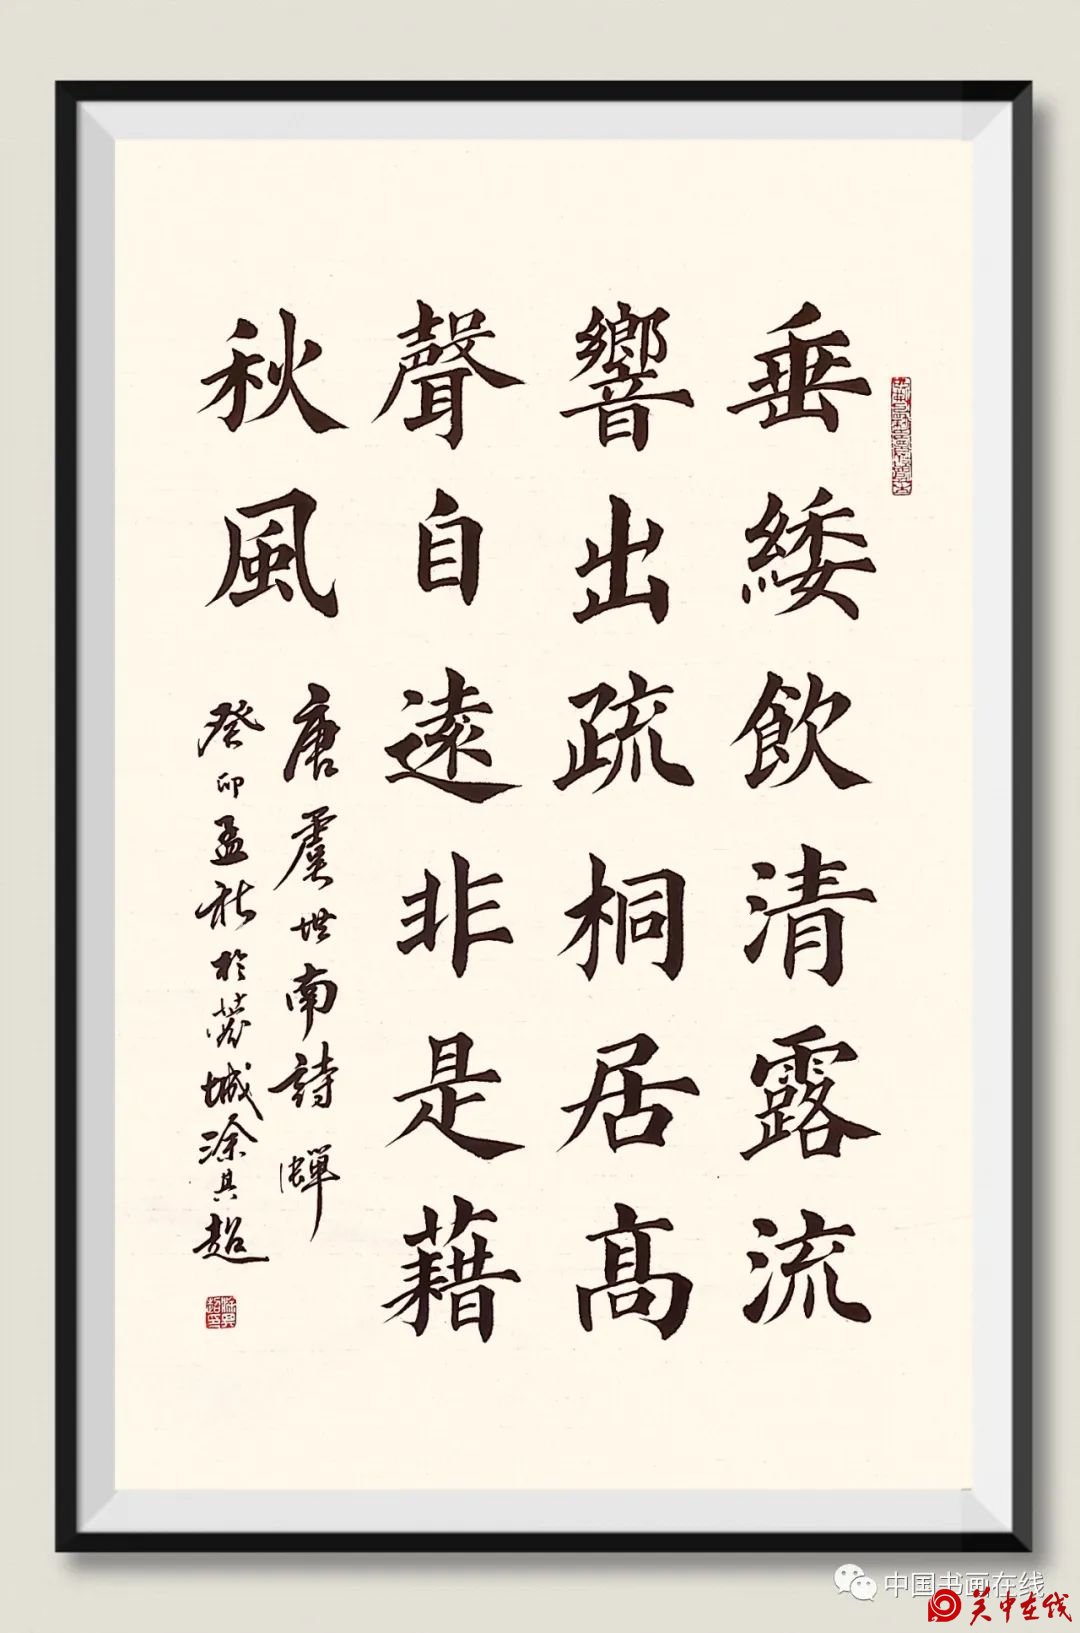 垂緌飲清露流
響出疏桐居高
聲自遠非是藉
秋風
唐虞世南詩蟬
癸卯孟秋於蓉城涂其超
中国书画在线
关中在线